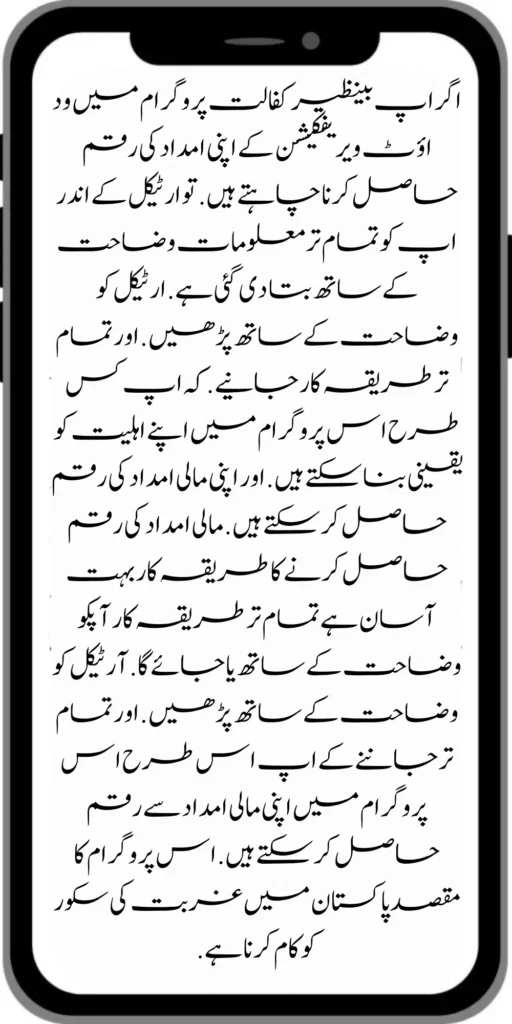 اگر اپ بینظیر کفالت پروگرام میں ود
اؤٹ ویریفکیشن کے اپنی امداد کی رقم
حاصل کرنا چاہتے ہیں. تو ارٹیکل کے اندر
اپ کو تمام تر معلومات وضاحت
کے ساتھ بتا دی گئی ہے. ارٹیکل کو
وضاحت کے ساتھ پڑھیں. اور تمام
تر طریقہ کار جانیے. کہ اپ کس
طرح اس پروگرام میں اپنے اہلیت کو
یقینی بنا سکتے ہیں. اور اپنی مالی امداد کی رقم
حاصل کر سکتے ہیں. مالی امداد کی رقم
حاصل کرنے کا طریقہ کار بہت
آسان ہے تمام تر طریقہ کار آپکو
وضاحت کے ساتھ یا جائے گا. آرٹیکل کو
وضاحت کے ساتھ پڑھیں. اور تمام
تر جاننے کے اپ اس طرح اس
پروگرام میں اپنی مالی امداد سے رقم
حاصل کر سکتے ہیں. اس پروگرام کا
مقصد پاکستان میں غربت کی سکور
کو کام کرنا ہے.